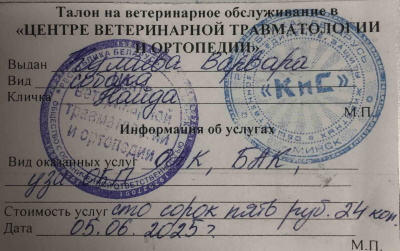 Талон на ветеринарное обслуживание в
«ЦЕНТРЕ ВЕТЕРИНАРНОЙ ТРАВМАТОЛОГИИ
И ОРТОПЕДИИ»
Выдан Варвара
Вид собака
Кличка Найда
М.П.
«КиС»
МИНСК
ветеринарной
травматологии
и ортопедии
Информация об услугах
Вид оказанных услуг ОАК, БАК,
узи ОБП
Стоимость услуг сто сорок пять руб. 24 коп.
Дата 05.06.2025 г.
М.П.